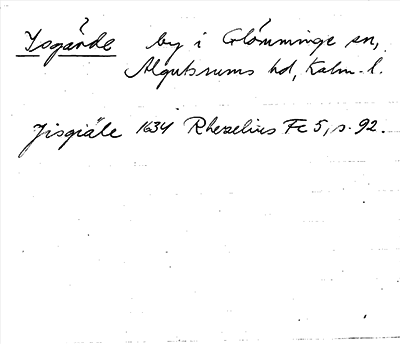 ?
Isgärde by i Glömminge sn,
Algutsrums hd, Kalm. l.
Jisgiäle 1634 Rhezelius Fc 5, s. 92.